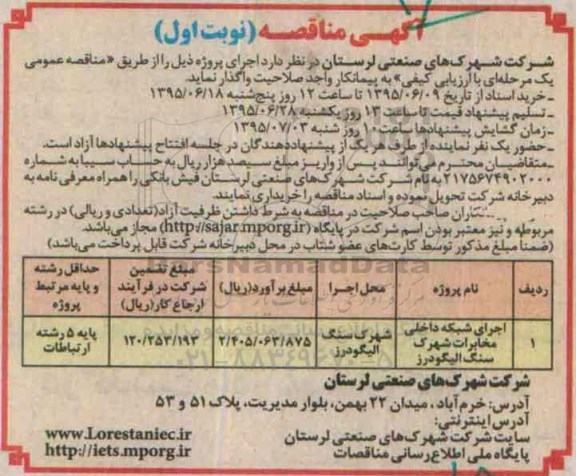 آگهی مناقصه (نوبت اول)
شرکت شهرک‌های صنعتی لرستان در نظر دارد اجرای پروژه ذیل را از طریق «مناقصه عمومی
یک مرحله‌ای با ارزیابی کیفی» به پیمانکار واجد صلاحیت واگذار نماید.
- خرید اسناد از تاریخ ۱۳۹۵/۰۶/۰۹ تا ساعت ۱۲ روز پنج‌شنبه ۱۳۹۵/۰۶/۱۸
- تسلیم پیشنهاد قیمت تا ساعت ۱۳ روز یکشنبه ۱۳۹۵/۰۶/۲۸
- زمان گشایش پیشنهادها ساعت ۱۰ روز شنبه ۱۳۹۵/۰۷/۰۳
- حضور یک نفر نماینده از طرف هر یک از پیشنهاددهندگان در جلسه افتتاح پیشنهادها آزاد است.
- متقاضیان محترم می‌توانند پس از واریز مبلغ سیصد هزار ریال به حساب سیبا به شماره
۲۱۷۵۶۷۴۹۰۲۰۰۰ به نام شرکت شهرک‌های صنعتی لرستان فیش بانکی را همراه معرفی نامه به
دبیرخانه شرکت تحویل نموده و اسناد مناقصه را خریداری نمایند.
صاحب صلاحیت در مناقصه به شرط داشتن ظرفیت آزاد (تعدادی و ریالی) در رشته
مربوطه و نیز معتبر بودن اسم شرکت در پایگاه (http://sajar.mporg.ir) مجاز می‌باشد.
(ضمنا مبلغ مذکور توسط کارت‌های عضو شتاب در محل دبیرخانه شرکت قابل پرداخت می‌باشد)
ردیف	نام پروژه	محل اجرا	مبلغ برآورد (ریال)	مبلغ تضمین شرکت در فرآیند ارجاع کار (ریال)	حداقل رشته و پایه مرتبط پروژه
۱	اجرای شبکه داخلی مخابرات شهرک سنگ الیگودرز	شهرک سنگ الیگودرز	۲/۴۰۵/۰۶۳/۸۷۵	۱۲۰/۲۵۳/۱۹۳	پایه ۵ رشته ارتباطات
شرکت شهرک‌های صنعتی لرستان
آدرس: خرم‌آباد، میدان ۲۲ بهمن، بلوار مدیریت، پلاک ۵۱ و ۵۳
آدرس اینترنتی:
سایت شرکت شهرک‌های صنعتی لرستان www.Lorestaniec.ir
پایگاه ملی اطلاع‌رسانی مناقصات http://iets.mporg.ir
ParsNamadData